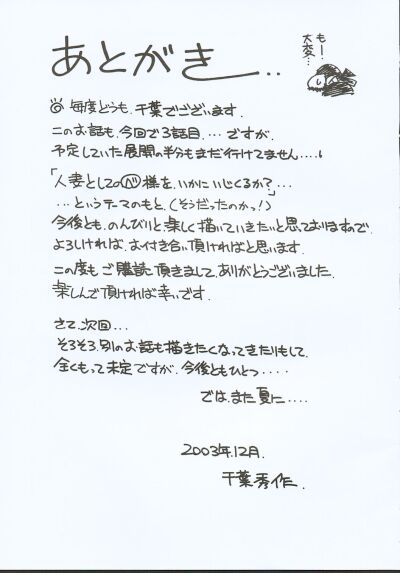 あとがき...
もー...
大変...
毎度どうも、千葉でございます.
このお話も、今回で3話目.... ですが、
予定していた展開の半分もまだ行けてません....、
「人妻としての㋬様を、いかにいじくるか?」...
...というテーマのもと、(そうだったのかっ!)
今後とも、のんびりと楽しく描いていきたいと思っておりますので、
よろしければ、お付き合い頂ければと思います.
この度もご購読頂きまして、ありがとうございました.
楽しんで頂ければ幸いです.
さて、次回...
そろそろ、別のお話も描きたくなってきたりもして、
全くもって未定ですが、今後ともひとつ....
では、また夏に....
2003年.12月.
千葉秀作.